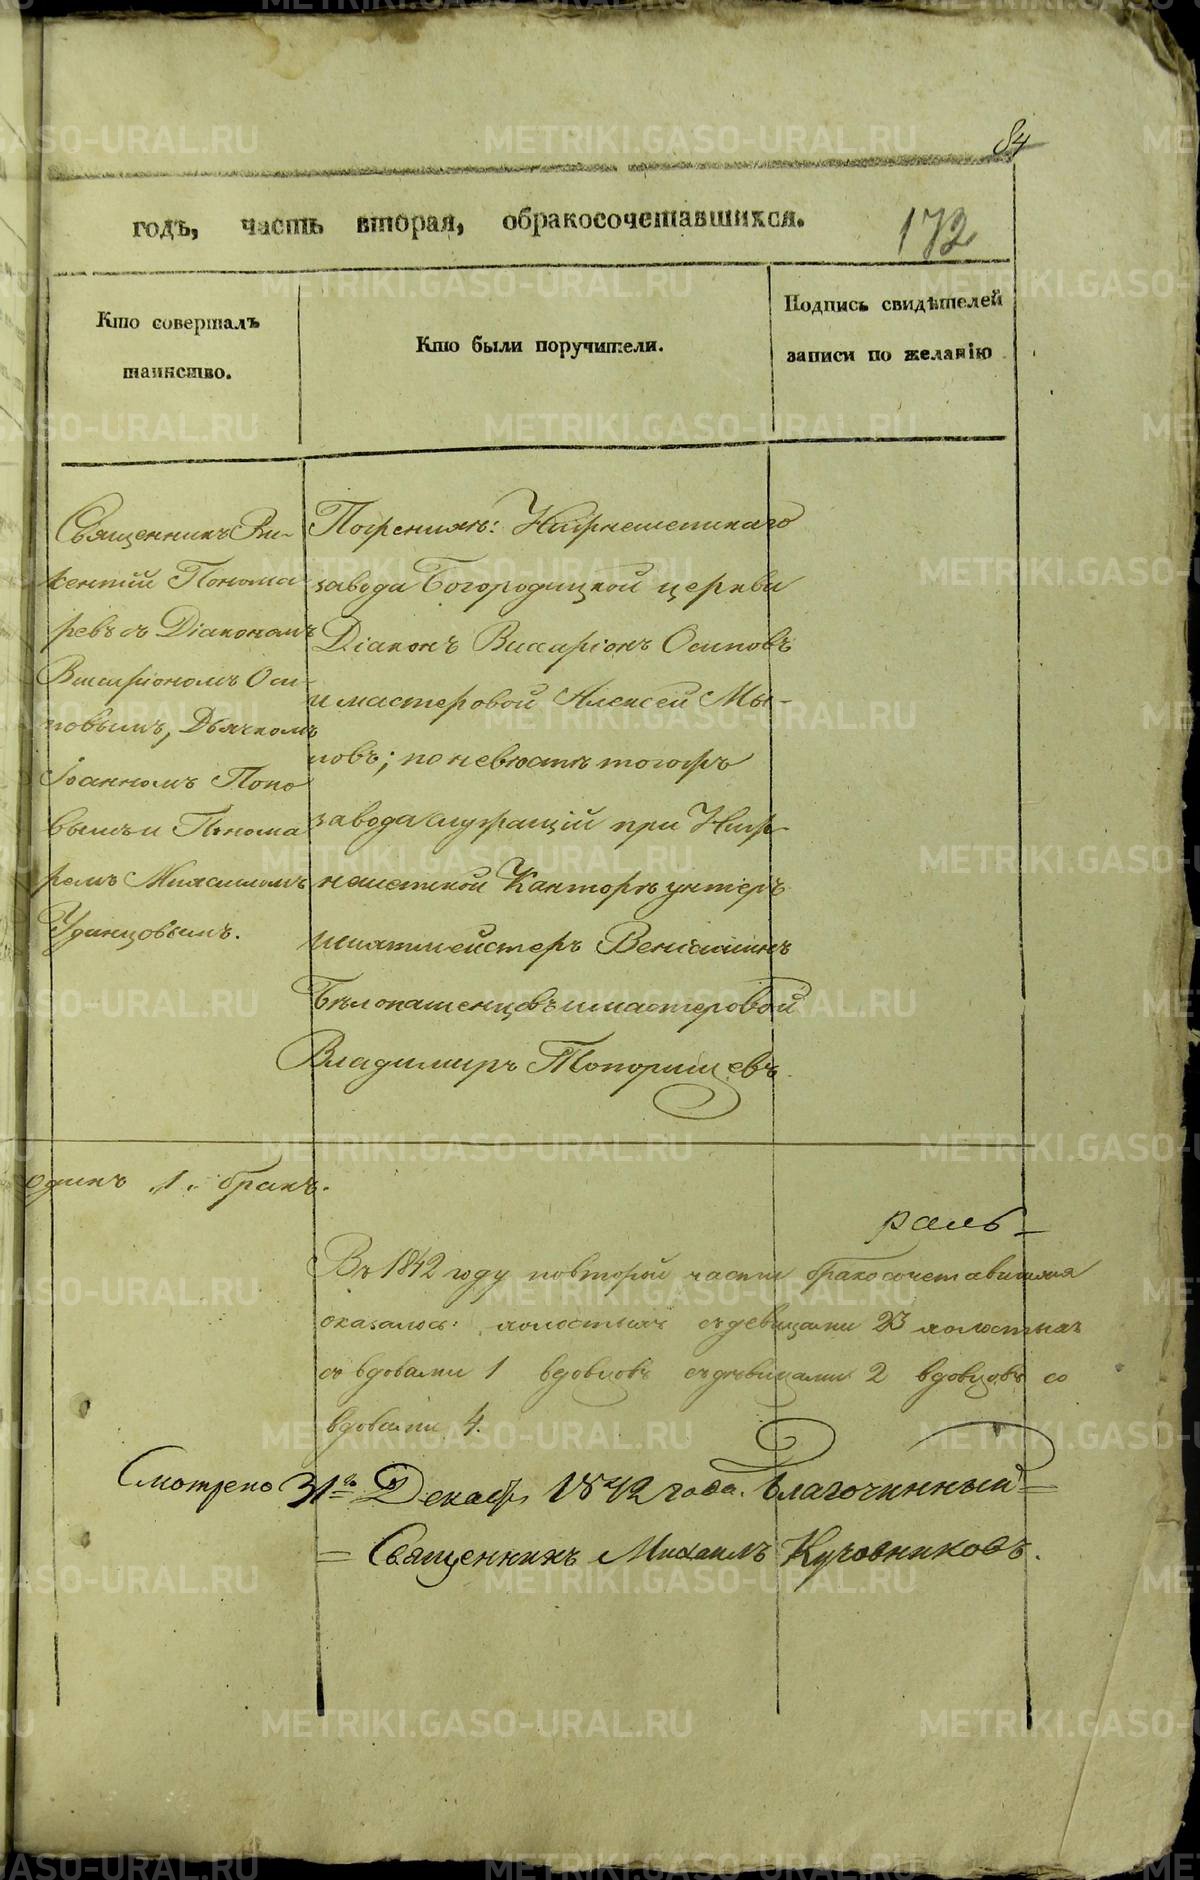 84
годъ, часть вторая, обракосочетавшихся.
172
Кто совершалъ
таинство.
Кто были поручители.
Подпись свидѣтелей
записи по желанію
Священникъ Ви-
кентій Понома
ревъ съ Діакономъ
Виссаріономъ Оси-
повымъ, Дьячкомъ
Іоанномъ Попо
вымъ и Понома
ремъ
Удинцовымъ.
По женихѣ: Нижнешетскаго
завода Богородицкой церкви
Діаконъ Виссаріонъ Осиповъ
и мастеровой Алексей Мы-
повъ; по невѣстѣ тогожъ
завода служащій при Ниж-
нешетской Канторѣ унтеръ
шихтмейстеръ Веніаминъ
Бѣлопашенцовъ и мастеровой
Владимиръ Топорищевъ.
одинъ „1„ бракъ.
раль
Въ 1842 году повторой части бракосочетавшихся
оказалось: холостыхъ съ девицами 23 холостыхъ
съ вдовами 1 вдовцовъ съ дѣвицами 2 вдовцовъ со
вдовами 4.
Смотрено 31го Декабр 1842 года. Благочинный
Священникъ Михаилъ
METRIKI.GASO-URAL.RU